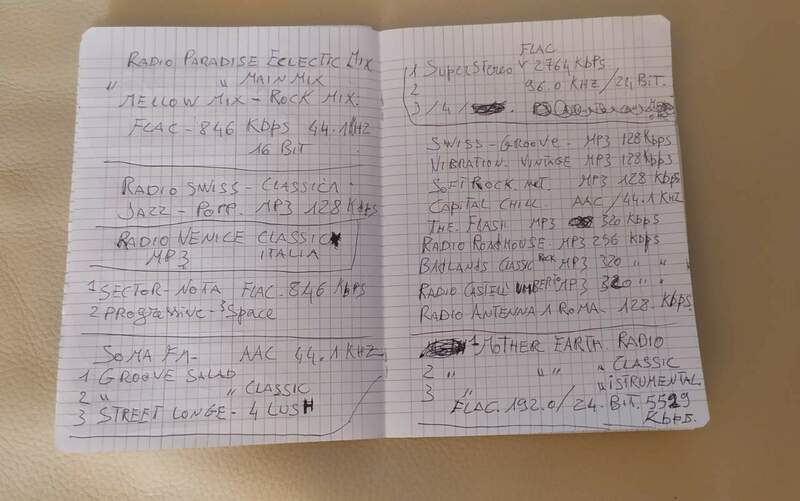 RADIO PARADISE ECLECTIC MIX
" " MAIN MIX
MELLOW MIX - ROCK MIX.
FLAC - 846 Kbps 44.1 KHZ
16 BIT
RADIO SWISS - CLASSICA -
JAZZ - POPP. MP3 128 Kbps
RADIO VENICE CLASSIC
MP3 ITALIA
1 SECTOR - NOTA FLAC. 846 Kbps
2 PROgRessive - 3 Space
SOMA FM - AAC 44.1 KHZ
1 GROOVE SALAD
2 " " CLASSIC
3 STREET LONGE - 4 LUSH
FLAC
1 SUPERSTEREO 2764 KBPS
2 96.0 KHZ/24 BIT.
3 / 4
SWISS - GROOVE - MP3 128 Kbps
VIBRATION. VINTAGE MP3 128 Kbps
SOFT ROCK. MP3 128 Kbps
CAPITAL CHILL. AAC / 44.1 KHZ
THE. FLASH MP3 320 Kbps
RADIO ROADHOUSE MP3 256 Kbps
BADLANDS CLASSIC ROCK MP3 320 " "
RADIO CASTELL UMBERTO MP3 320 " "
RADIO ANTENNA 1 ROMA. 128. Kbps
1 MOTHER EARTH RADIO
2 " " " CLASSIC
3 " " ISTRUMENTAL
FLAC. 192.0/24. BIT. 5529
Kbps.